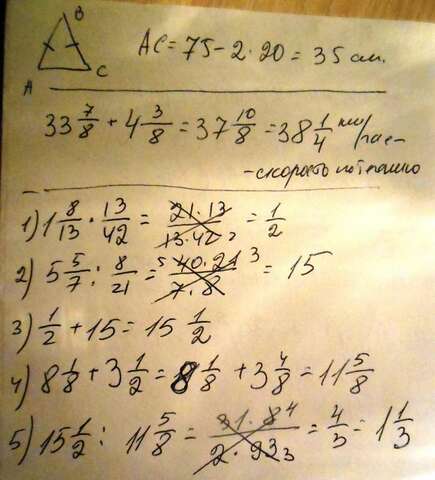 B
A C
AC = 75 - 2 · 20 = 35 см.
33 7/8 + 4 3/8 = 37 10/8 = 38 1/4 км/час -
- скорость по теч
1) 1 8/13 · 13/42 = 21·13/13·42 2 = 1/2
2) 5 5/7 : 8/21 = 5 40·21 3/7·8 = 15
3) 1/2 + 15 = 15 1/2
4) 8 1/8 + 3 1/2 = 8 1/8 + 3 4/8 = 11 5/8
5) 15 1/2 : 11 5/8 = 31·8 4/2·93 3 = 4/3 = 1 1/3